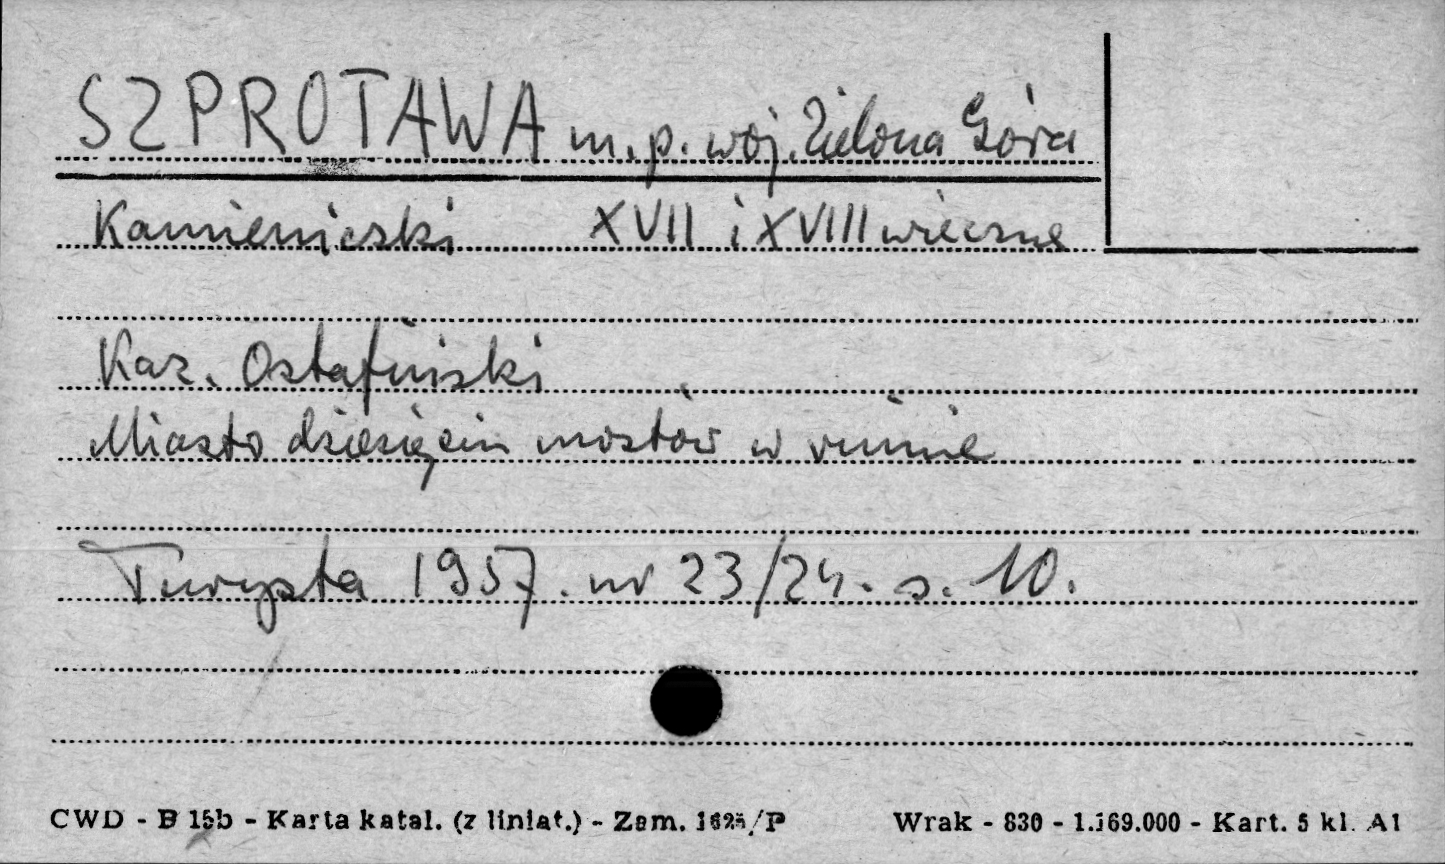 SZPROTAWA m. p. woj. Zielona Góra
Kamieniczki XVII i XVIII wieczne
Kaz. Ostafiński
Miasto dziesięciu mostów w ruinie
Turysta 1957. nr 23/24. s. 10.
CWD - B 15b - Karta katal. (z liniat.) - Zam. /P Wrak - 830 - 1.169.000 - Kart. 5 kl. A1